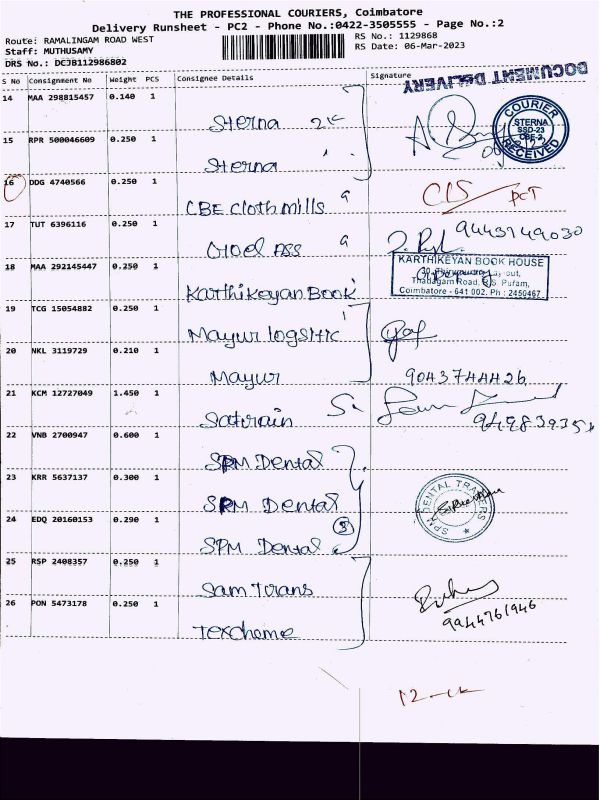 THE PROFESSIONAL COURIERS, Coimbatore
Delivery Runsheet - PC2 - Phone No.:0422-3505555 - Page No.:2
Route: RAMALINGAM ROAD WEST
RS No.: 1129868
Staff: MUTHUSAMY
RS Date: 06-Mar-2023
DRS No.: DCJB112986802
S No Consignment No Weight PCS Consignee Details Signature
DOCUMENT DELIVERY
14 MAA 298815457 0.140 1 Sterna
COURIER
STERNA
SSD-23
CBE-2
RECEIVED
15 RPR 500046609 0.250 1 Sterna
16 DDG 4740566 0.250 1 CBE Cloth mills
17 TUT 6396116 0.250 1 Goel ASS 9443749030
18 MAA 292145447 0.250 1 Karthikeyan Book
KARTHIKEYAN BOOK HOUSE
Thadagam Road, R.S. Puram,
Coimbatore - 641 002. Ph : 2450467
19 TCG 15054882 0.250 1 Mayur logistic
20 NKL 3119729 0.210 1 Mayur 9043744426
21 KCM 12727049 1.450 1
22 VNB 2700947 0.600 1 SPM Dental
23 KRR 5637137 0.300 1 SPM Dental
SPM DENTAL TRADERS
24 EDQ 20160153 0.290 1 SPM Dental 3
25 RSP 2408357 0.250 1 Sam Trans
26 PON 5473178 0.250 1 Texcheme 9944761946